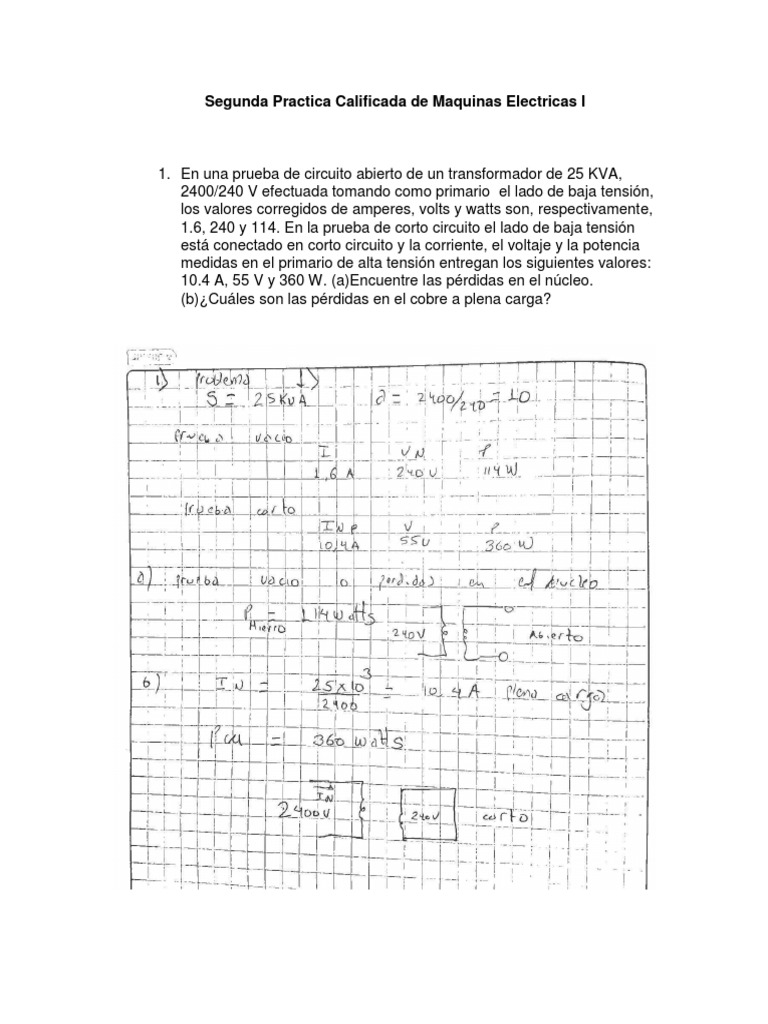 Segunda Practica Calificada de Maquinas Electricas I
1. En una prueba de circuito abierto de un transformador de 25 KVA,
2400/240 V efectuada tomando como primario el lado de baja tensión,
los valores corregidos de amperes, volts y watts son, respectivamente,
1.6, 240 y 114. En la prueba de corto circuito el lado de baja tensión
está conectado en corto circuito y la corriente, el voltaje y la potencia
medidas en el primario de alta tensión entregan los siguientes valores:
10.4 A, 55 V y 360 W. (a)Encuentre las pérdidas en el núcleo.
(b)¿Cuáles son las pérdidas en el cobre a plena carga?
1) Problema 1)
S = 25 KVA a = 2400/240 = 10
Prueba vacio
I VN P
1,6 A 240 V 114 W
Prueba corto
INP V P
10,4 A 55V 360 W
a) Prueba vacio o perdidas en el nucleo
P Hierro = 114 watts 240V Abierto
b) IN = 25x10³/2400 = 10.4 A plena carga
Pcu = 360 watts
IN
2400V 240V corto